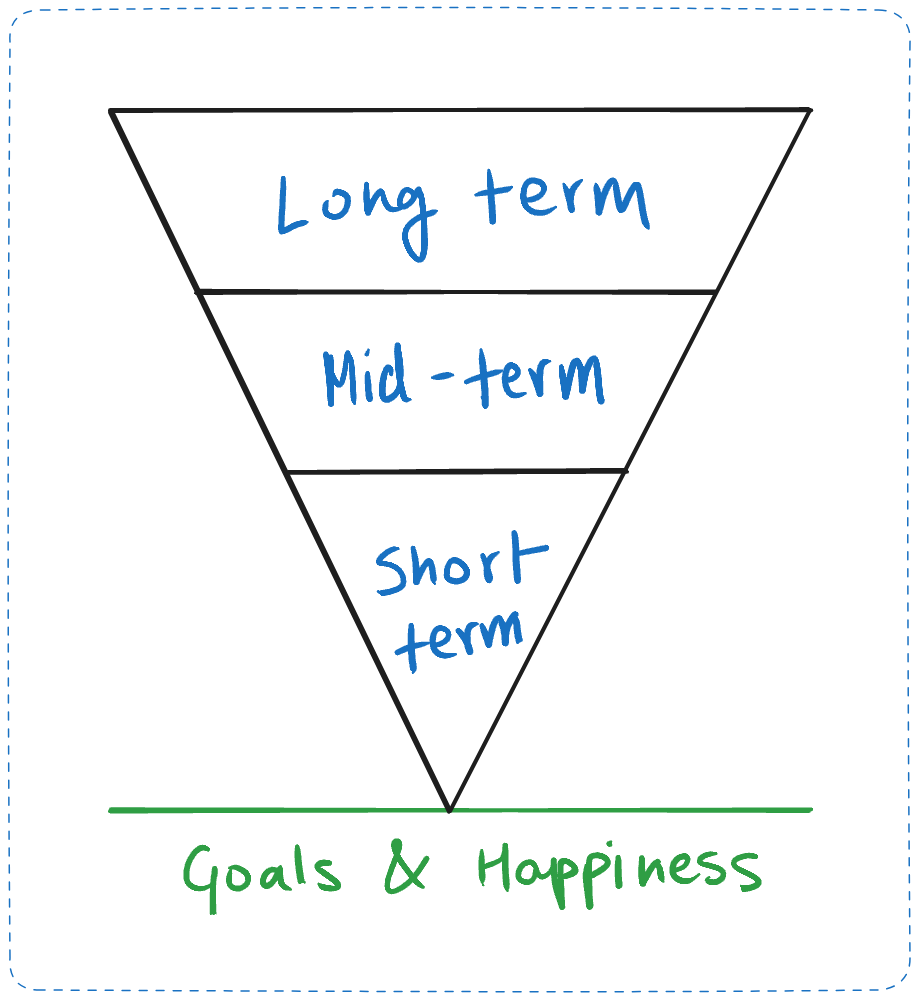 Long term
Mid-term
Short
term
Goals & Happiness